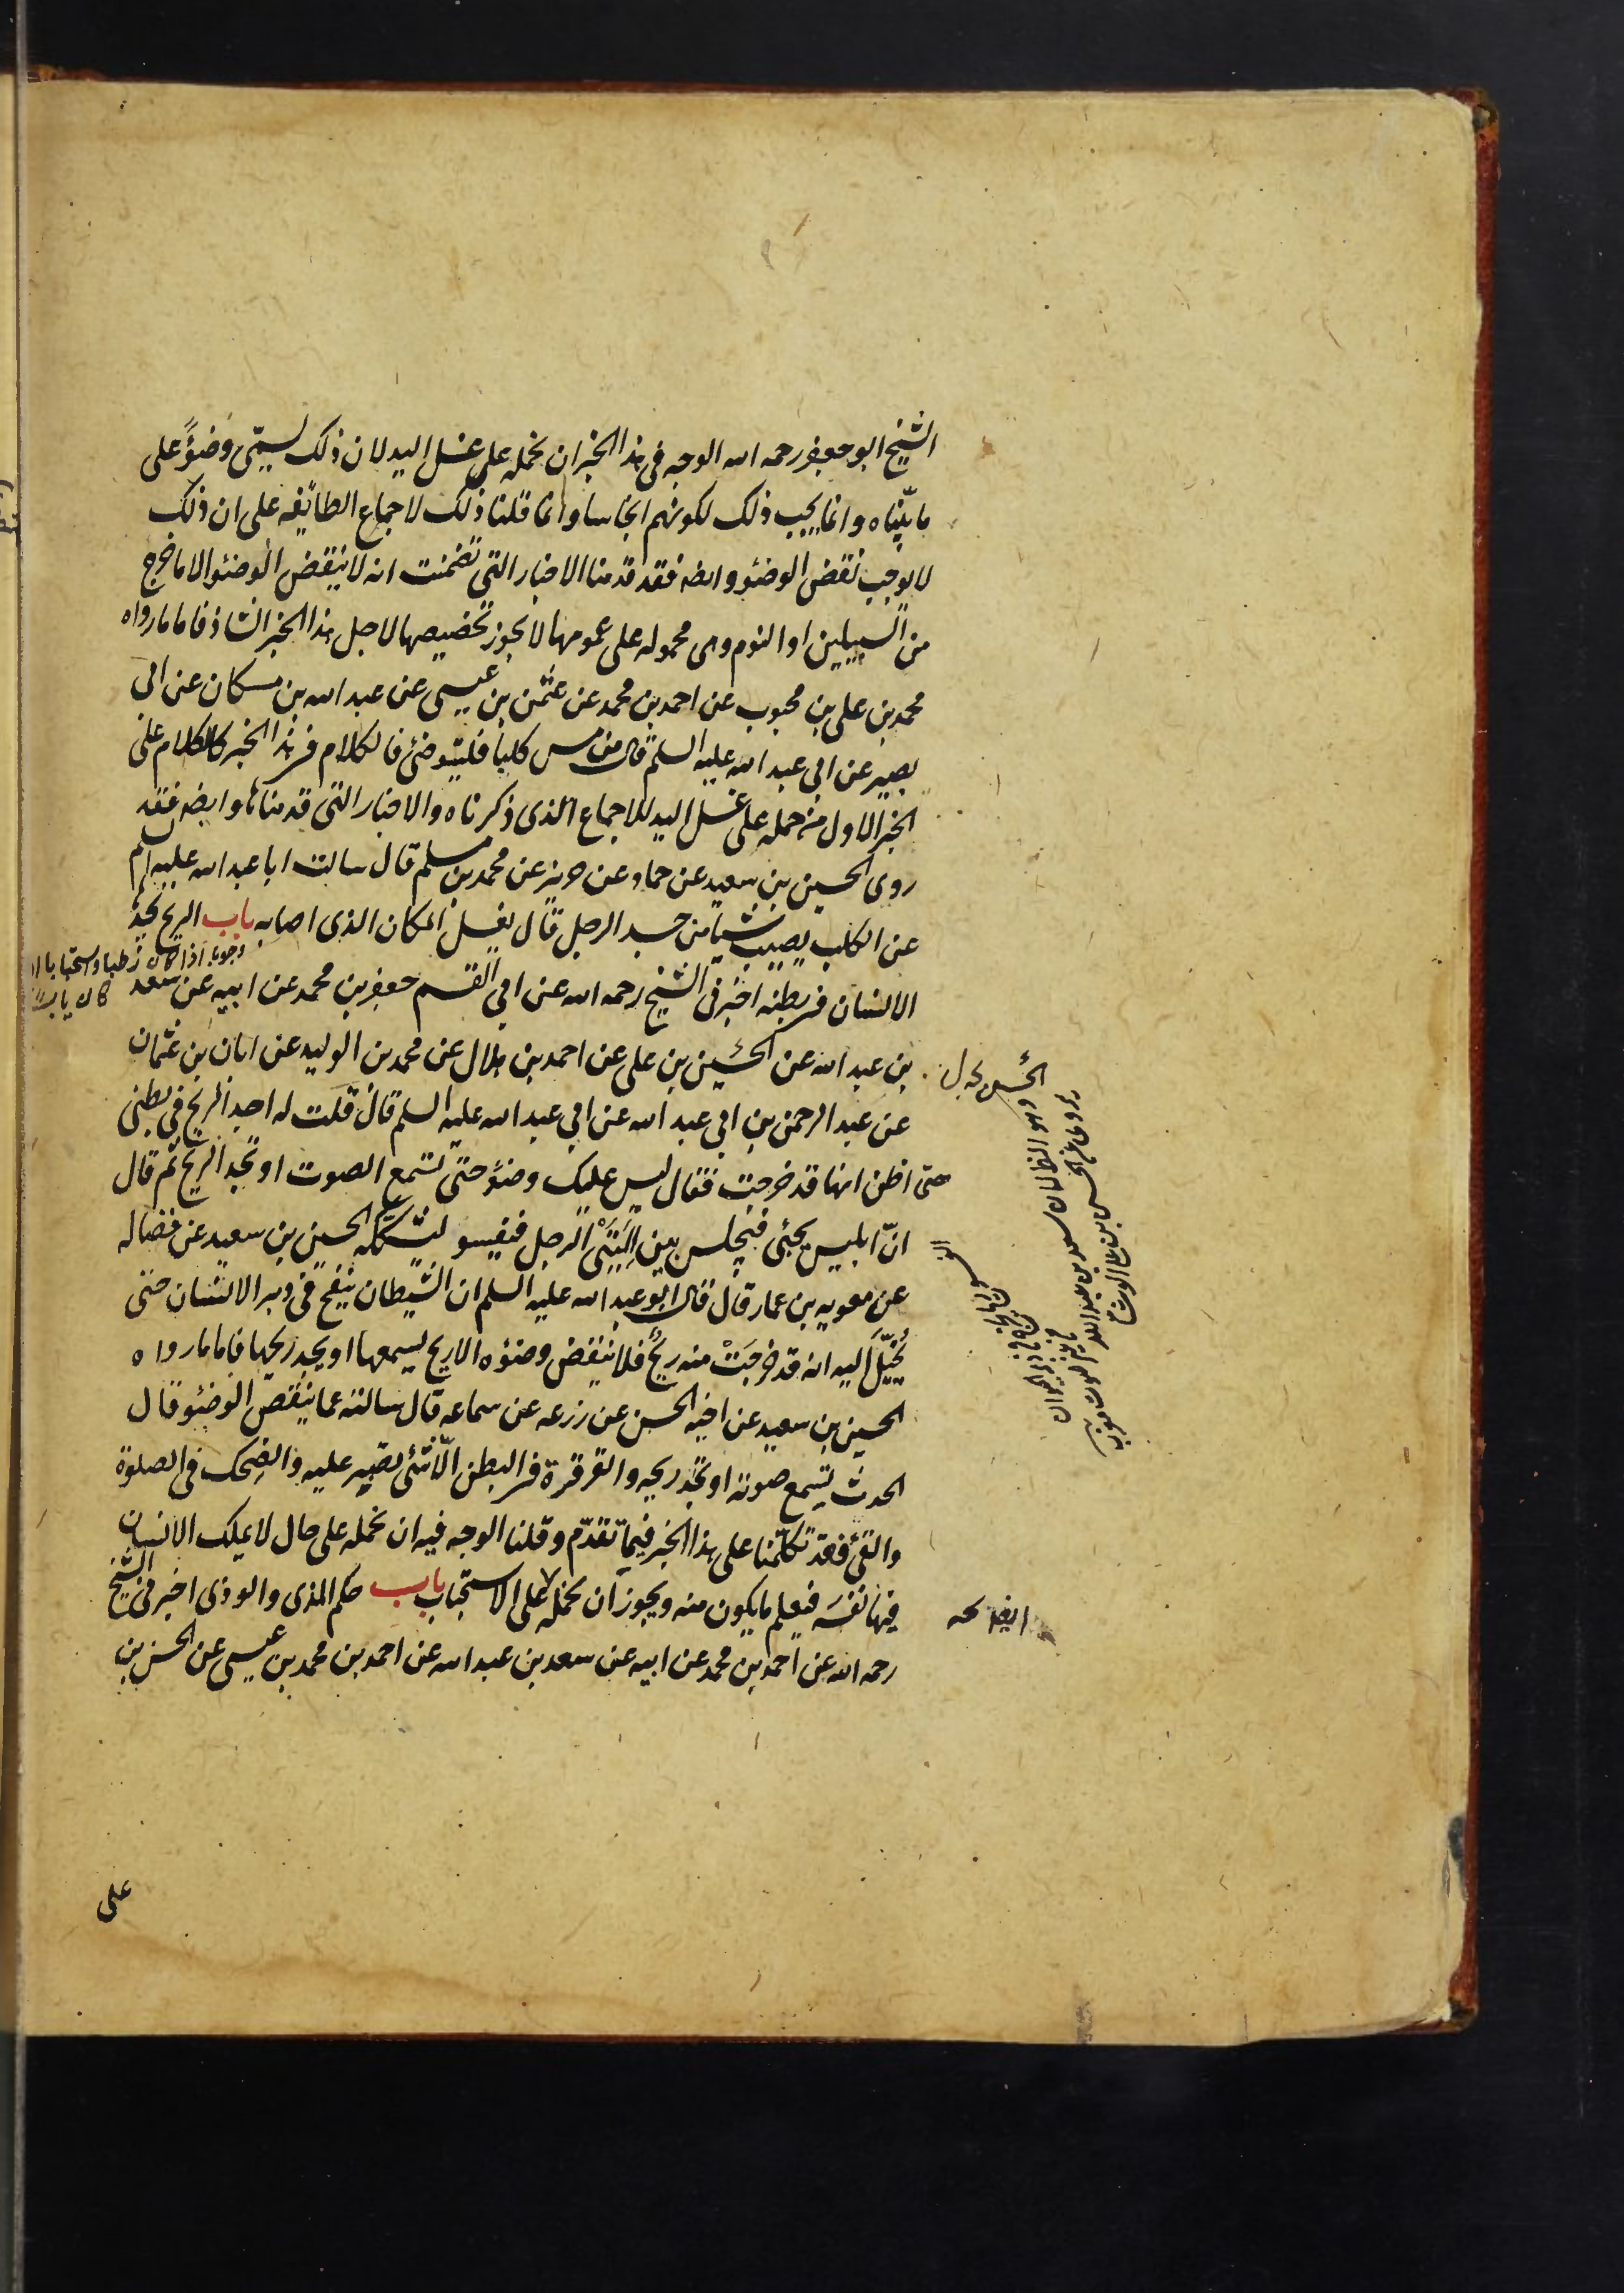 الشيخ ابو جعفر رحمه الله الوجه فى هذا الخبر ان نحمله على غسل اليد لان ذلك يسمّى وضوءً على
ما بيّنّاه وانما يجب ذلك لكونهم انجاسا وانما قلنا ذلك لاجماع الطائفه على ان ذلك
لا يوجب نقض الوضوء وايضه فقد قدمنا الاخبار التى تضمنت انه لا ينقض الوضوء الا ما خرج
من السبيلين او النوم وهى محموله على عمومها لا يجوز تخصيصها لاجل هذا الخبر الشاذ فاما ما رواه
محمد بن على بن محبوب عن احمد بن محمد عن عثمن بن عيسى عن عبد الله بن مسكان عن ابى
بصير عن ابى عبد الله عليه السلم قال من مس كلبا فليتوضئ فالكلام فى هذا الخبر كالكلام على
الخبر الاول من حمله على غسل اليد للاجماع الذى ذكرناه والاخبار التى قدمناها وايضه فقد
روى الحسين بن سعيد عن حماد عن حريز عن محمد بن مسلم قال سالت ابا عبد الله عليه السلم
عن الكلب يصيب شيئا من جسد الرجل قال يغسل المكان الذى اصابه باب الريح يجد
وجوبا اذا كان رطبا واستحبابا اذا
كان يابسا
الانسان فى بطنه اخبرنى الشيخ رحمه الله عن ابى القسم جعفر بن محمد عن ابيه عن سعد
بن عبد الله عن الحسين بن على عن احمد بن هلال عن محمد بن الوليد عن ابان بن عثمان
عن عبد الرحمن بن ابى عبد الله عن ابى عبد الله عليه السلم قال قلت له اجد الريح فى بطنى
حتى اظن انها قد خرجت فقال ليس عليك وضوء حتى تسمع الصوت او تجد الريح ثم قال
انّ ابليس يجئى فيجلس بين اليتى الرجل فيفسو ليشككه الحسين بن سعيد عن فضاله
عن معويه بن عمار قال قال ابو عبد الله عليه السلم ان الشيطان ينفخ فى دبر الانسان حتى
يُخيّلَ اليه انه قد خرجَتْ منه ريحٌ فلا ينقض وضوءه الا ريح يسمعها او يجد ريحها فاما ما رواه
الحسين بن سعيد عن اخيه الحسن عن زرعه عن سماعه قال سالته عما ينقض الوضوء قال
الحدث تسمع صوته او تجد ريحه والقرقرة فى البطن الّا شئ تصبر عليه والضحك فى الصلوة
والقئ فقد تكلّمنا على هذا الخبر فيما تقدّم وقلنا الوجه فيه ان نحمله على حال لا يملك الانسان
فيها نفسَه فيعلم ما يكون منه ويجوز ان نحمله على الاستحباب باب حكم المذى والوذى اخبرنى الشيخ
رحمه الله عن احمد بن محمد عن ابيه عن سعد بن عبد الله عن احمد بن محمد بن عيسى عن الحسن بن
الحسن
على